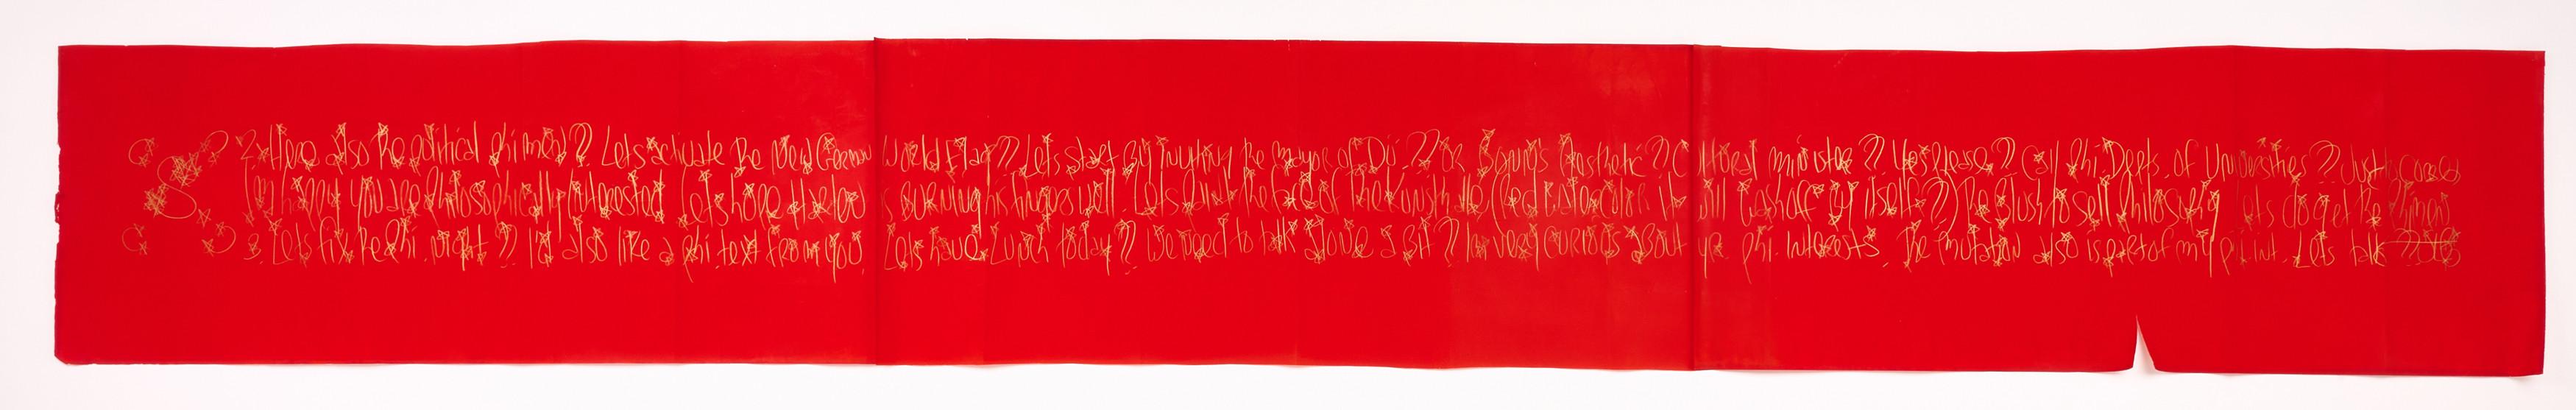 also the political phimen? Lets activate the New German World Flag?? Lets start by inviting the mayor of Dü.?? or Bonns Aesthetic? Cultural minister? Yes please? Call Phi Depts. of Universities? Just
Im happy you are philosophically interested Lets hope is burning his fingers well Lets paint the facade of the Kunsthalle (Red watercolor it will wash off by itself?) The Rush to sell philosophy lets do get the Phimen
3. Lets fix the phi. night?? Id also like a phi. text from you Lets have Lunch today? We need to talk alone a bit? Im very curious about yr. phi. interests. The mutation also is part of my point. Lets talk